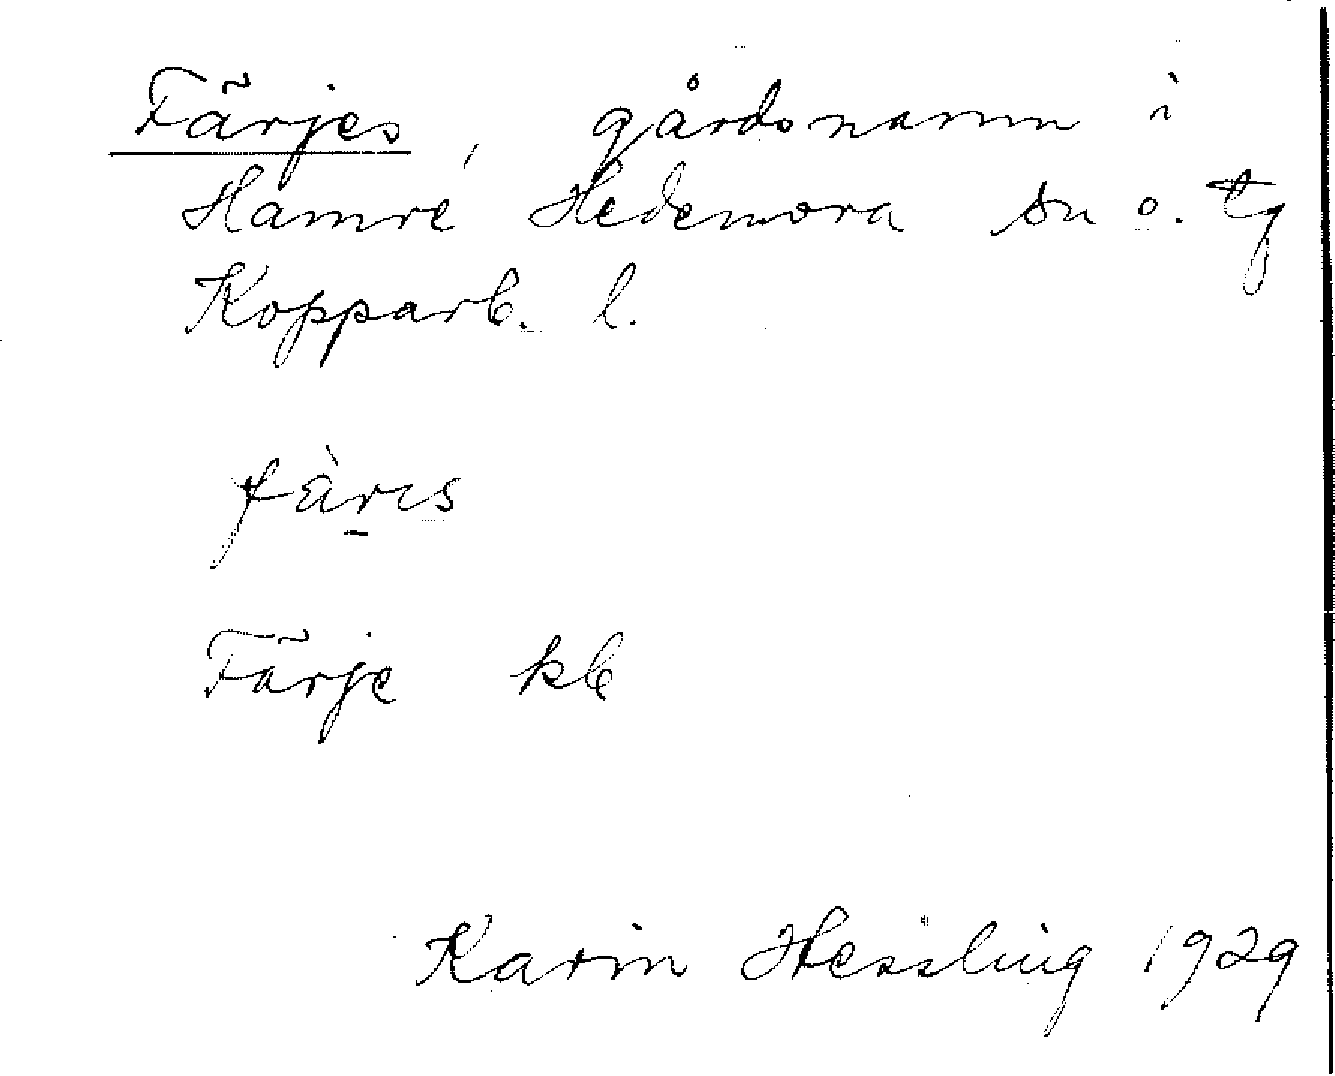 Färjes, gårdsnamn i
Hamre Hedemora sn o. tg
Kopparb. l.
fàrιs
Färje kb
Karin Hessling 1929